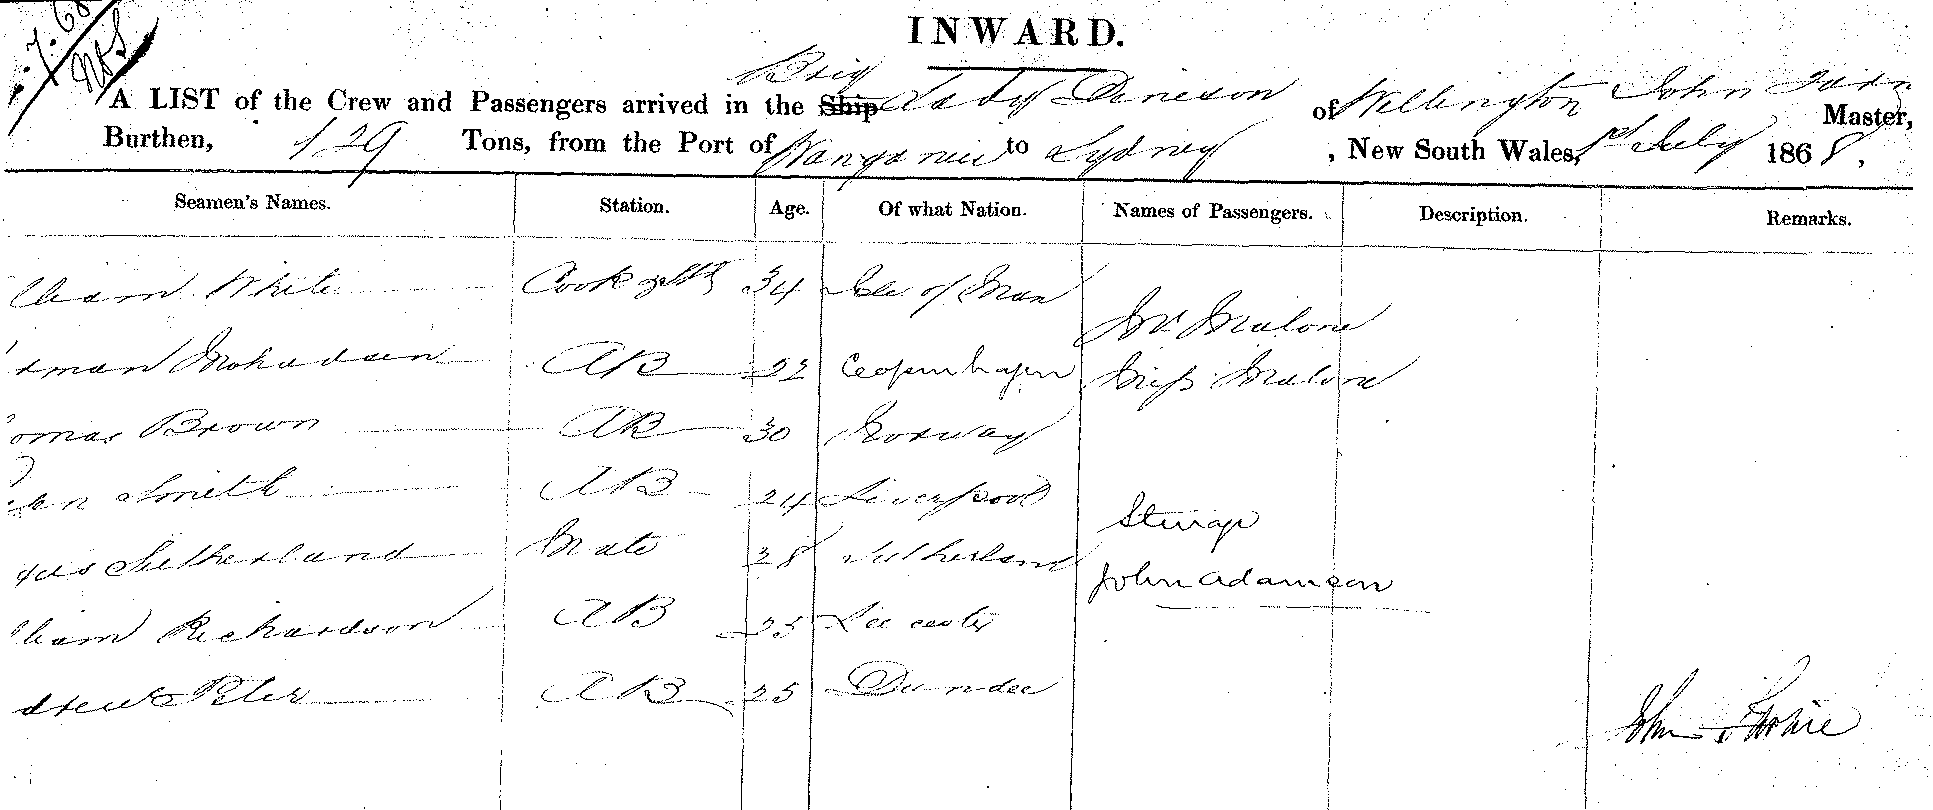 .7.68
INWARD.
A LIST of the Crew and Passengers arrived in the Ship Brig Lady Denison of Wellington John Master,
Burthen, 129 Tons, from the Port of Wanganui to Sydney, New South Wales, 1st July 1868.
Seamen's Names. Station. Age. Of what Nation. Names of Passengers. Description. Remarks.
lliam White Cook & Std 34 Isle of Man
Mr Malone
rman AB 22 Copenhagen Miss Malone
omas Brown AB 30 Norway
Smith AB 24 Liverpool
Sterage
Sutherland Mate 28 Sutherland
John Adamson
lliam Richardson AB 25 Leicester
drew Peter AB 25 Dundee
John